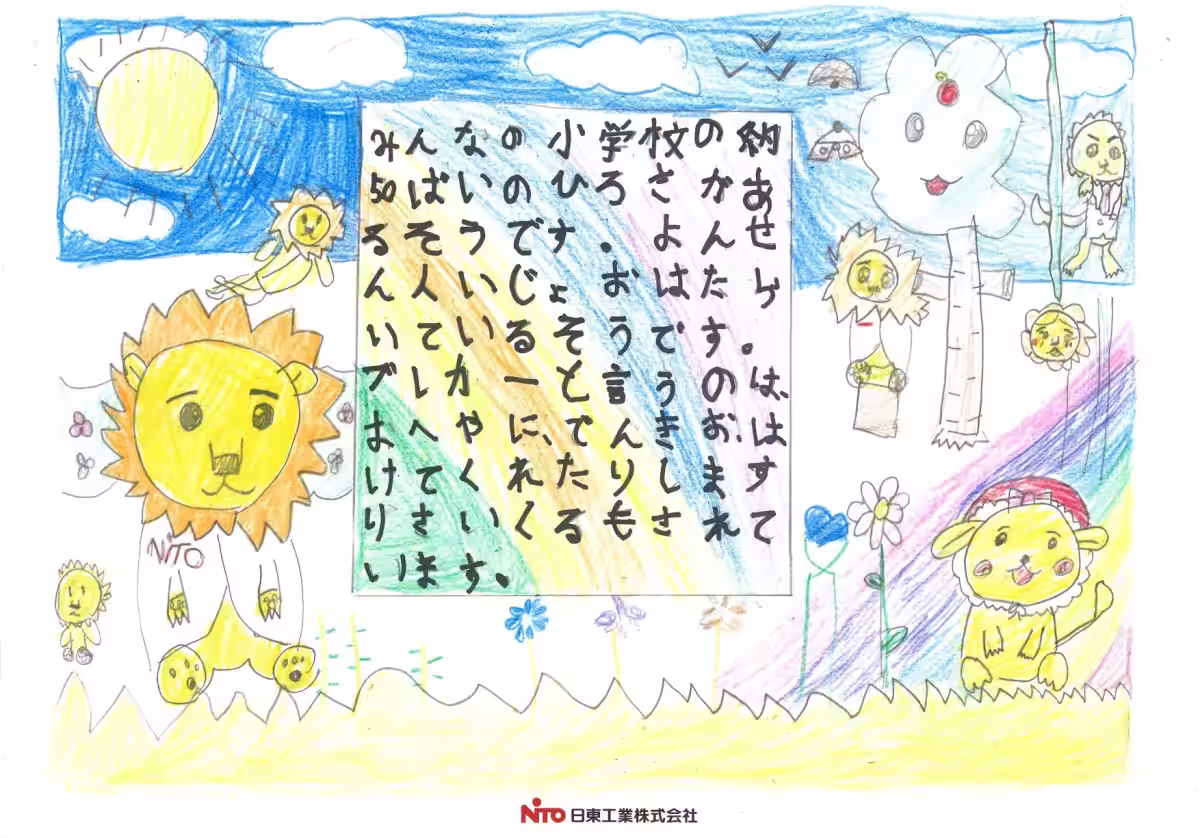 みんなの小学校の納
50ばいのひろさがあ
るそうです。よんせ
ん人いじょおはたら
いているそうです。
ブレカーと言うのは、
へやに、でんきお、は
けてくれたりします
りさいくるもされて
います。
NiTO
NiTO 日東工業株式会社